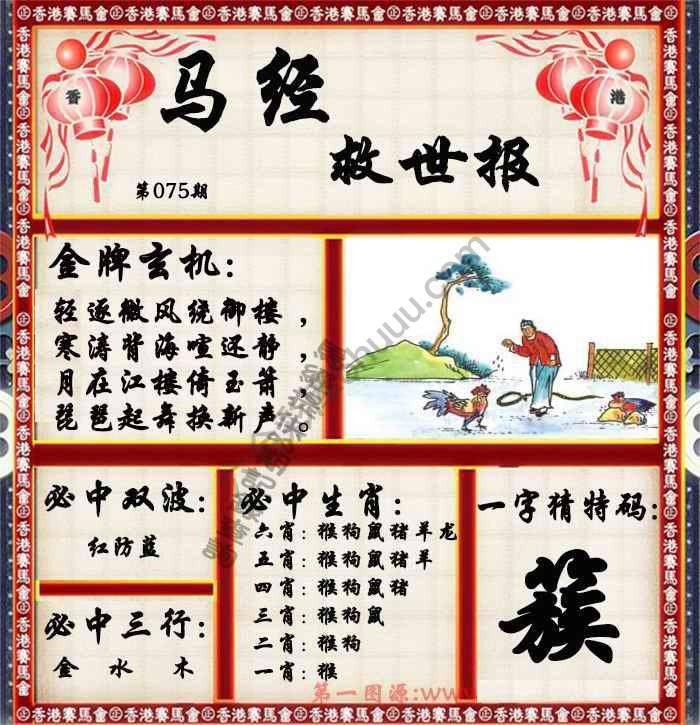 香港賽馬會
香
港
马经
救世报
第075期
金牌玄机：
轻逐微风绕御楼，
寒涛背海喧还静，
月在江楼倚玉箫，
琵琶起舞换新声。
必中双波：
红防蓝
必中三行：
金 水 木
必中生肖：
六肖：猴狗鼠猪羊龙
五肖：猴狗鼠猪羊
四肖：猴狗鼠猪
三肖：猴狗鼠
二肖：猴狗
一肖：猴
一字猜特码：
簇
第一图源:www